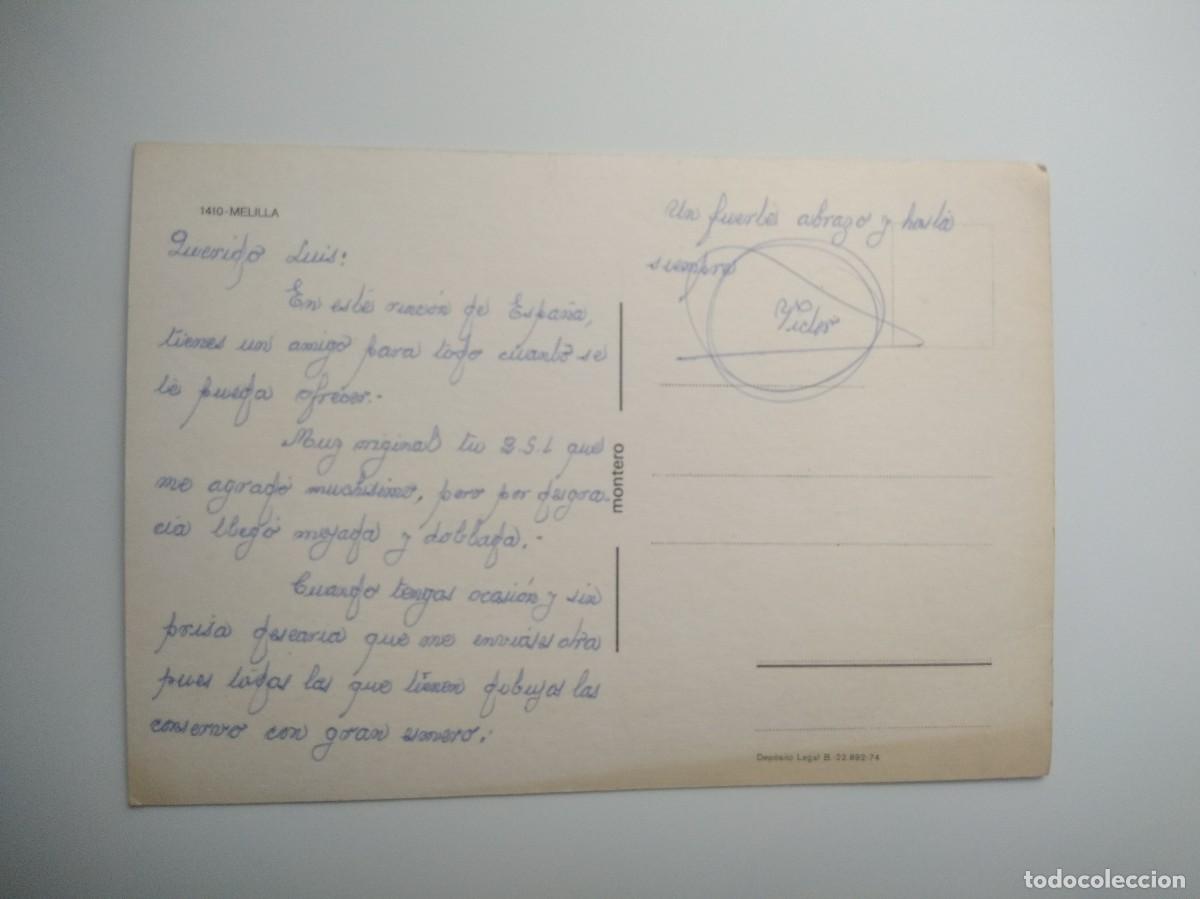 1410-MELILLA
Querido Luis:
En este rincón de España,
tienes un amigo para todo cuanto se
te pueda ofrecer.-
Muy original tu Q.S.L que
me agradó muchísimo, pero por desgra-
cia llegó mojada y doblada.-
Cuando tengas ocasión y sin
prisa desearia que me enviáses otra
pues todas las que tienen dibujos las
conservo con gran esmero.
montero
Un fuerte abrazo y hasta
siempre
Victor
Depósito Legal B. 22.892-74
todocoleccion